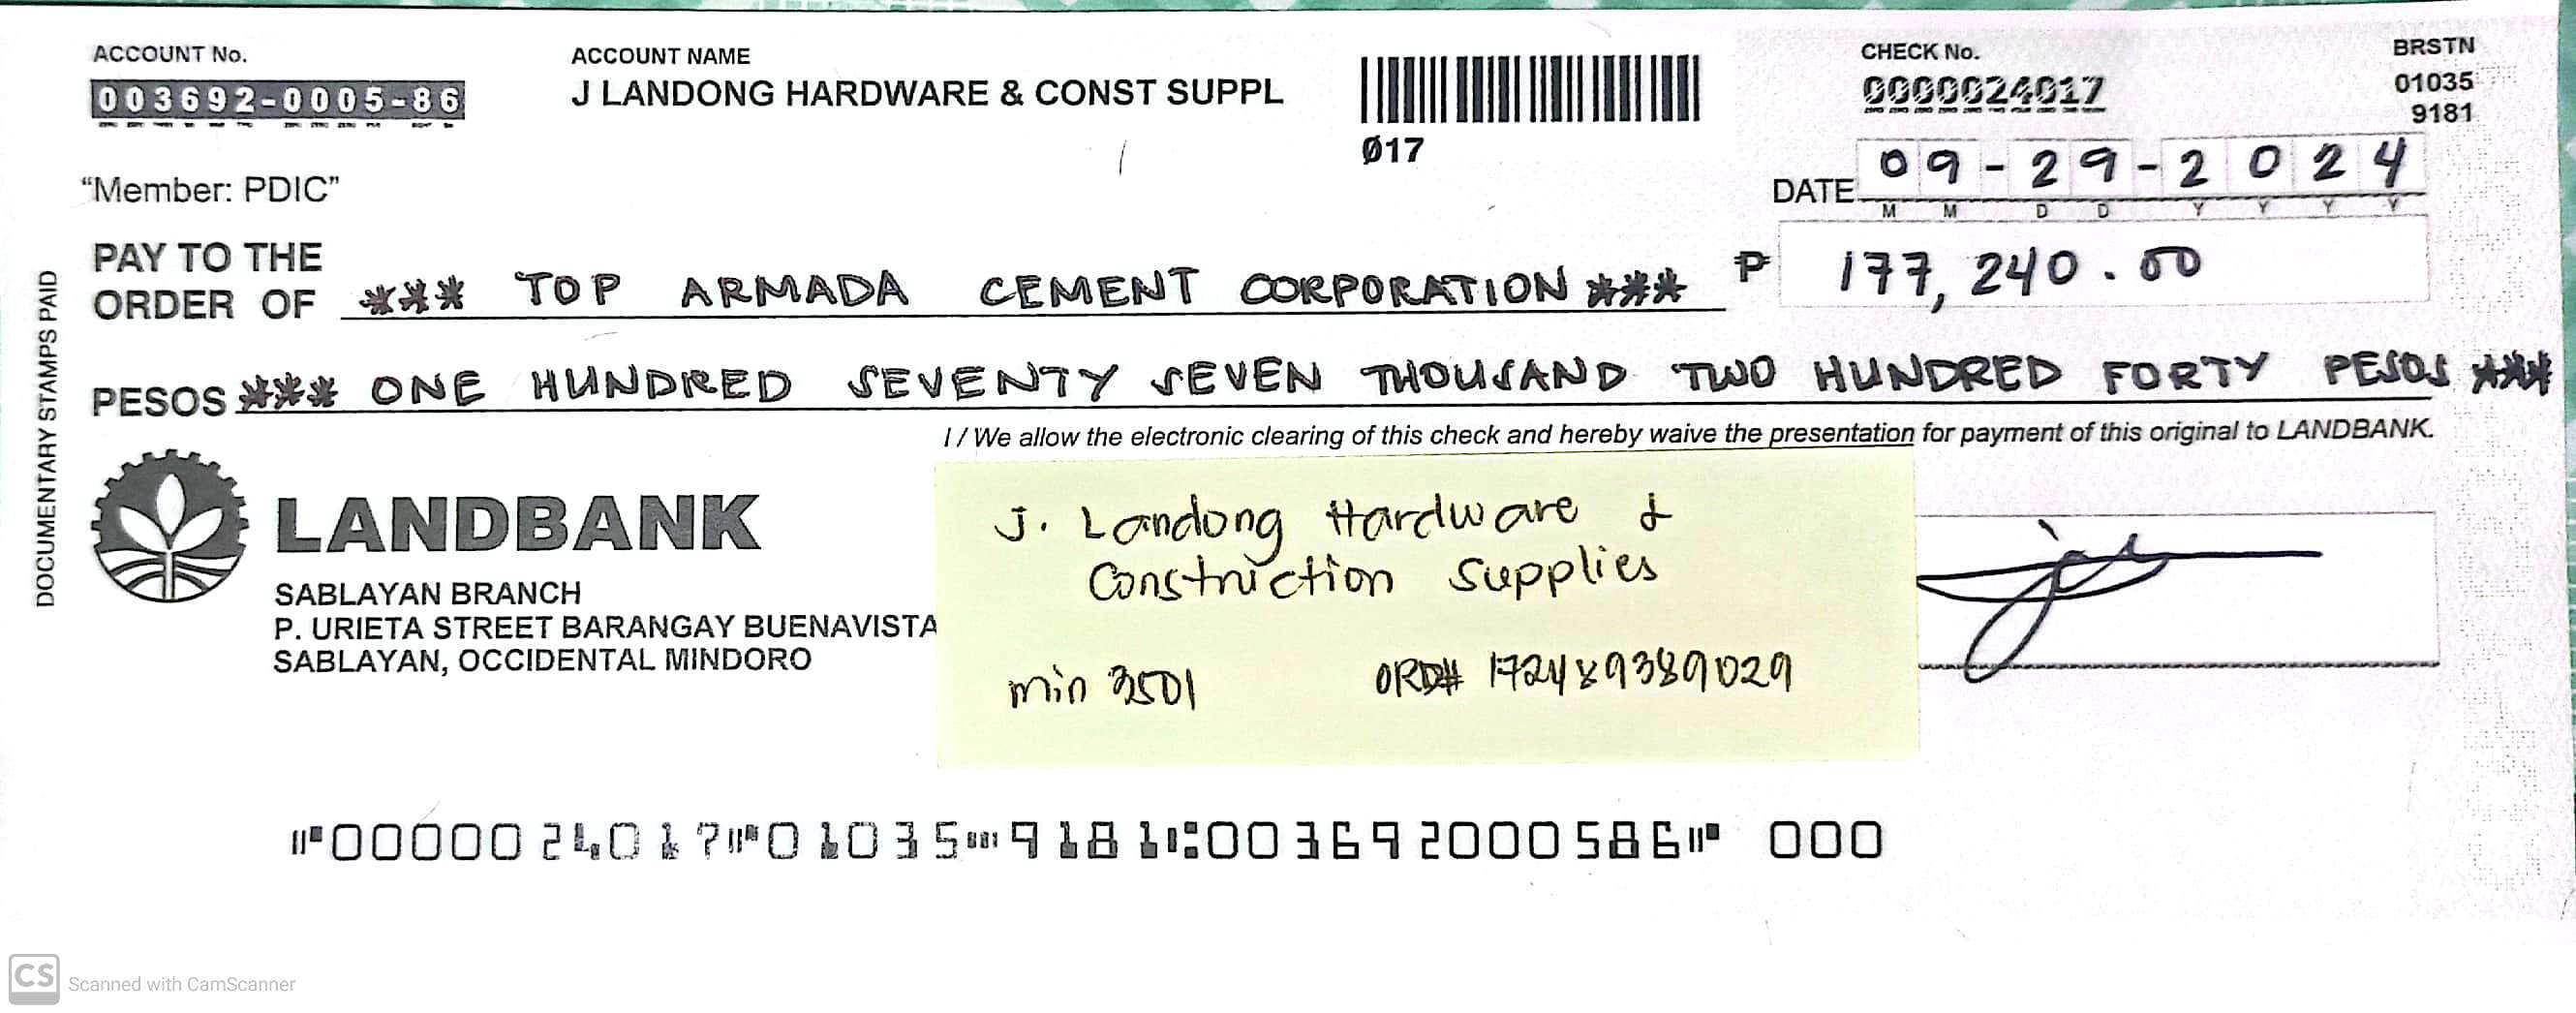 ACCOUNT No.
003692-0005-86
ACCOUNT NAME
J LANDONG HARDWARE & CONST SUPPL
Ø17
CHECK No.
0000024017
BRSTN
01035
9181
DATE 09-29-2024
M M D D Y Y Y Y
"Member: PDIC"
PAY TO THE
ORDER OF *** TOP ARMADA CEMENT CORPORATION ***
₱ 177,240.00
PESOS *** ONE HUNDRED SEVENTY SEVEN THOUSAND TWO HUNDRED FORTY PESOS ***
I / We allow the electronic clearing of this check and hereby waive the presentation for payment of this original to LANDBANK.
DOCUMENTARY STAMPS PAID
LANDBANK
SABLAYAN BRANCH
P. URIETA STREET BARANGAY BUENAVISTA
SABLAYAN, OCCIDENTAL MINDORO
J. Landong Hardware &
Construction Supplies
min 3501
ORD# 172489389029
⑈0000024017⑈01035⑉9181⑆003692000586⑈ 000
CS Scanned with CamScanner